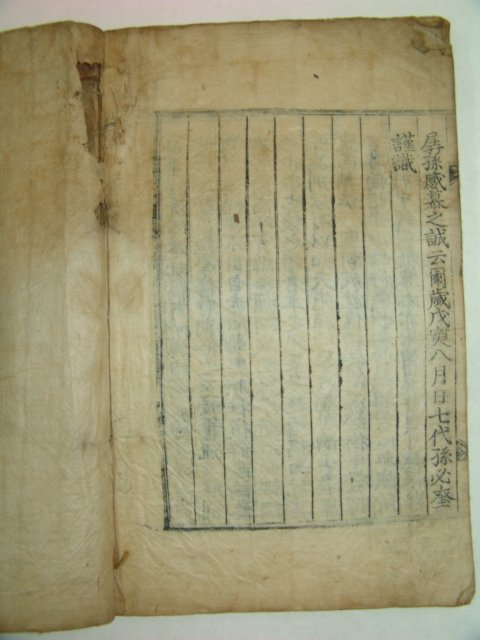 孱孫感慕之誠云爾歲戊寅八月日七代孫必奎
謹識